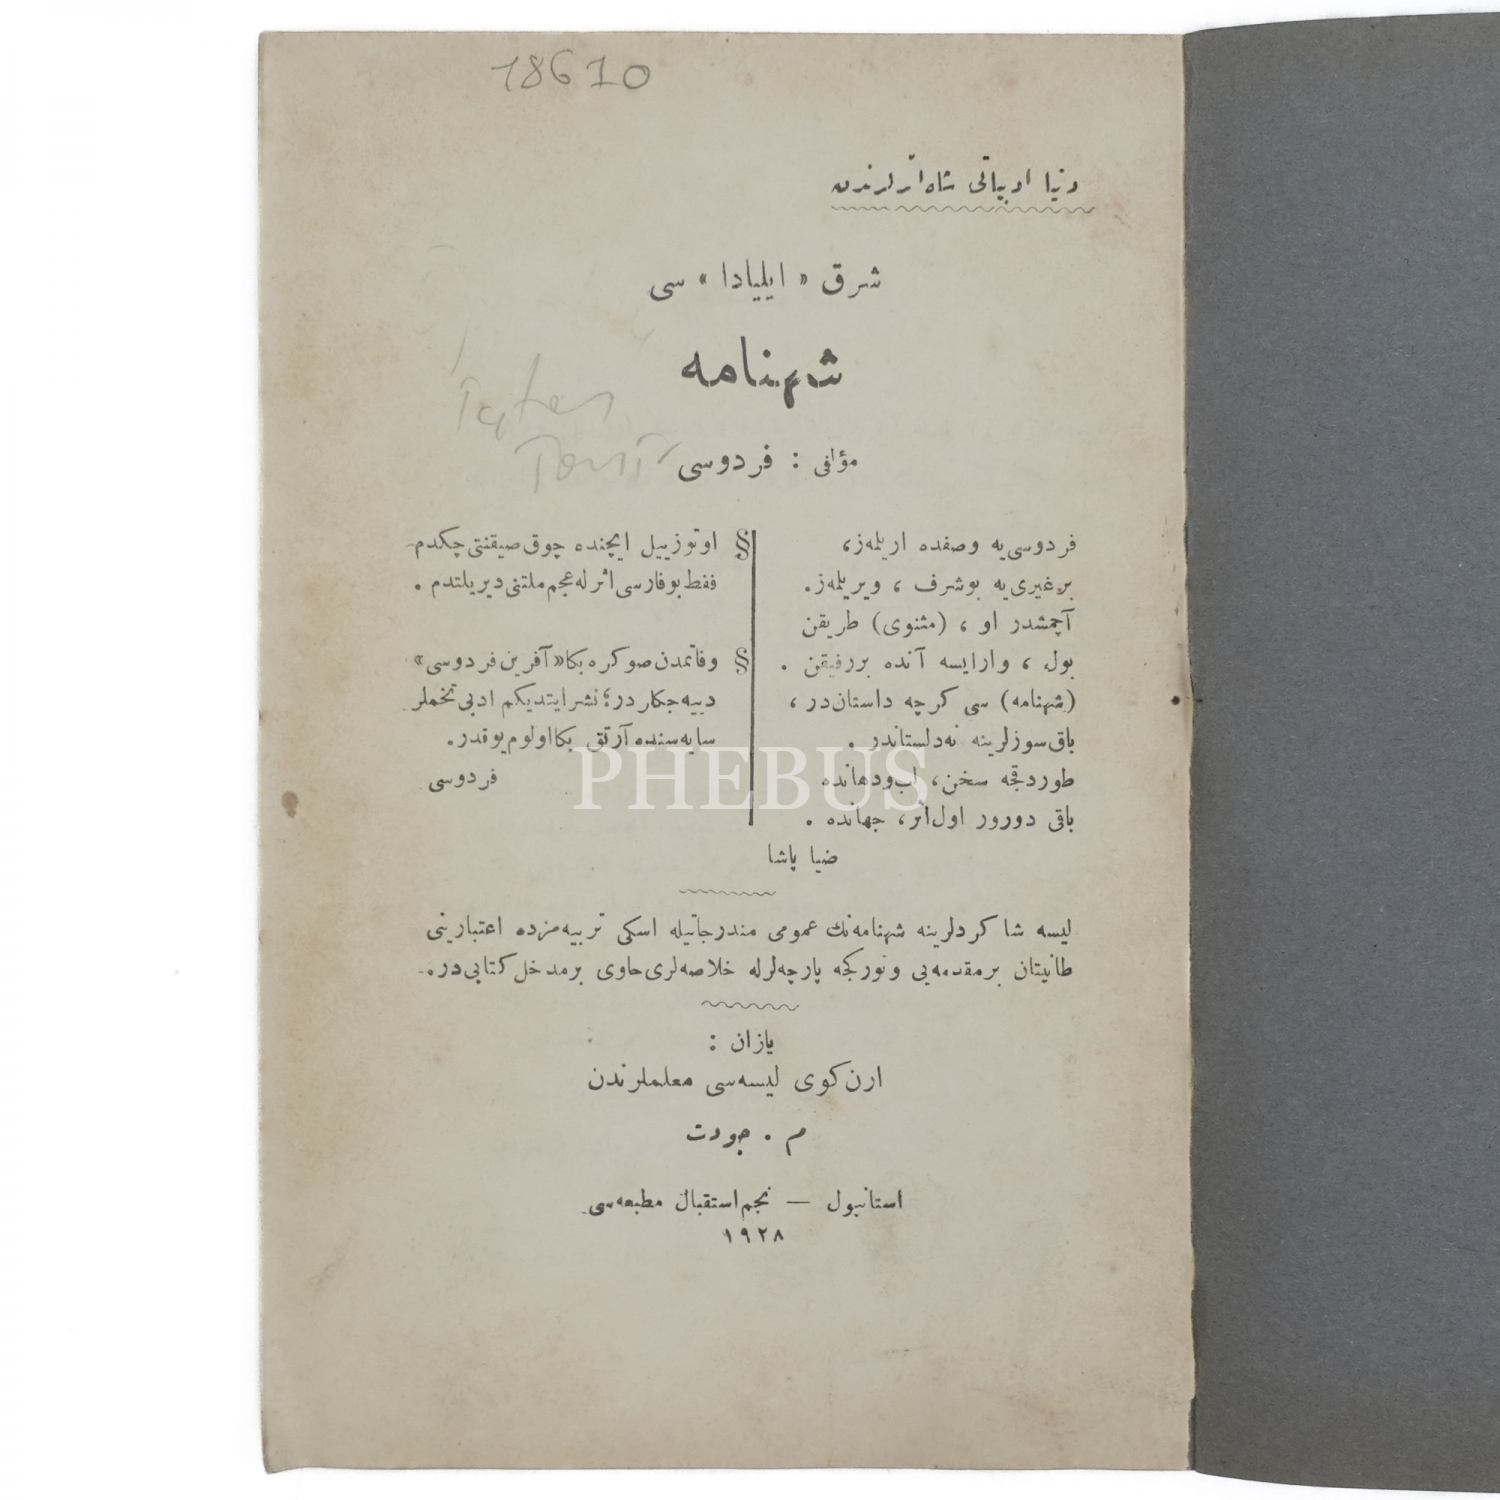 18610
دنیا ادبیاتی شاه اثرلرندن
شرق « ایلیادا » سی
شهنامه
مؤلفی : فردوسی
فردوسی‌یه وصفده اریلمه‌ز،
برغیری‌یه بوشرف ، ویریلمه‌ز.
آچمشدر او ، (مثنوی) طریقن
بول ، وارایسه آنده بررفیقن .
(شهنامه) سی کرچه داستان‌در ،
باق سوزلرینه نه‌دلستاندر .
طوردقجه سخن، لب‌ودهانده
باقی دورور اول‌اثر، جهانده .
ضیا پاشا
§ اوتوز ییل ایچنده چوق صیقنتی چکدم
فقط بو فارسی اثرله عجم ملتنی دیریلتدم .
§ وفاتمدن صوکره بکا «آفرین فردوسی»
دییه‌جکلر در؛ نشر ایتدیکم ادبی تخملر
سایه‌سنده آرتق بکا اولوم یوقدر.
فردوسی
لیسه شاکردلرینه شهنامه‌نك عمومی مندرجاتیله اسکی تربیه‌مزده اعتبارینی
طانیتان برمقدمه‌یی وتورکجه پارچه‌لرله خلاصه‌لری حاوی برمدخل کتابی در.
یازان :
ارن‌کوی لیسه‌سی معلملرندن
م . جودت
استانبول — نجم استقبال مطبعه‌سی
۱۹۲۸
PHEBUS